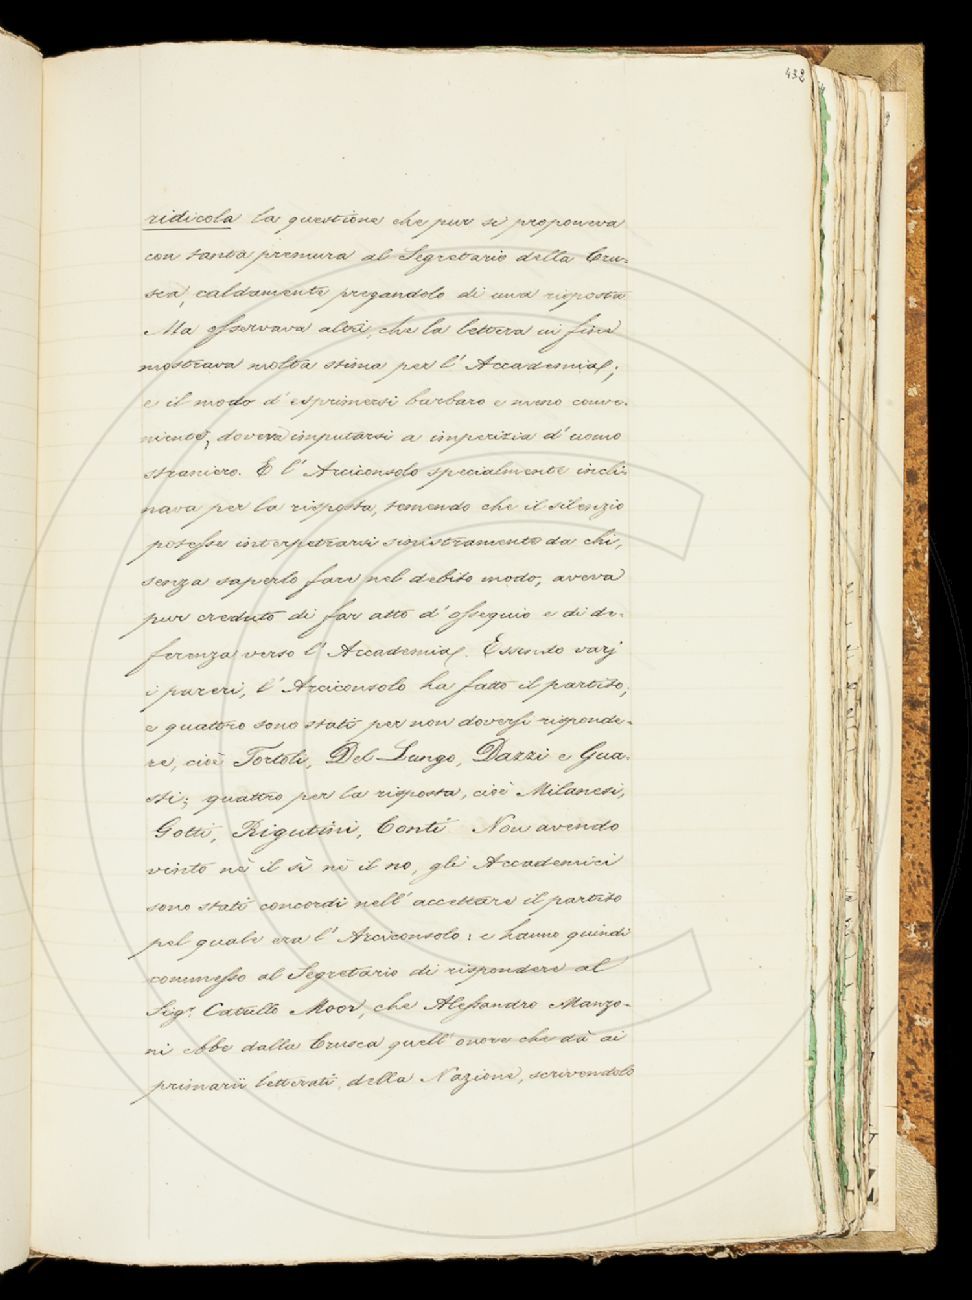 432
ridicola la questione che pur si proponeva
con tanta premura al Segretario della Cru-
sca, caldamente pregandolo di una risposta
Ma osservava altri, che la lettera in fine
mostrava molta stima per l'Accademia;
e il modo d'esprimersi barbaro e meno conve-
niente, doversi imputarsi a imperizia d'uomo
straniero. E l'Arciconsolo specialmente incli-
nava per la risposta, temendo che il silenzio
potesse interpetrarsi sinistramente da chi,
senza saperlo fare nel debito modo, aveva
pur creduto di far atto d'ossequio e di de-
ferenza verso l'Accademia. Essendo varj
i pareri, l'Arciconsolo ha fatto il partito;
e quattro sono stati per non doversi risponde-
re, cioè Tortoli, Del Lungo, Dazzi e Gua-
sti; quattro per la risposta, cioè Milanesi,
Gotti, Rigutini, Conti. Non avendo
vinto nè il sì nè il no, gli Accademici
sono stati concordi nell'accettare il partito
pel quale era l'Arciconsolo: e hanno quindi
commesso al Segretario di rispondere al
Sig.r Catullo Moor, che Alessandro Manzo-
ni ebbe dalla Crusca quell'onore che dà ai
primarii letterati della Nazione, scrivendolo